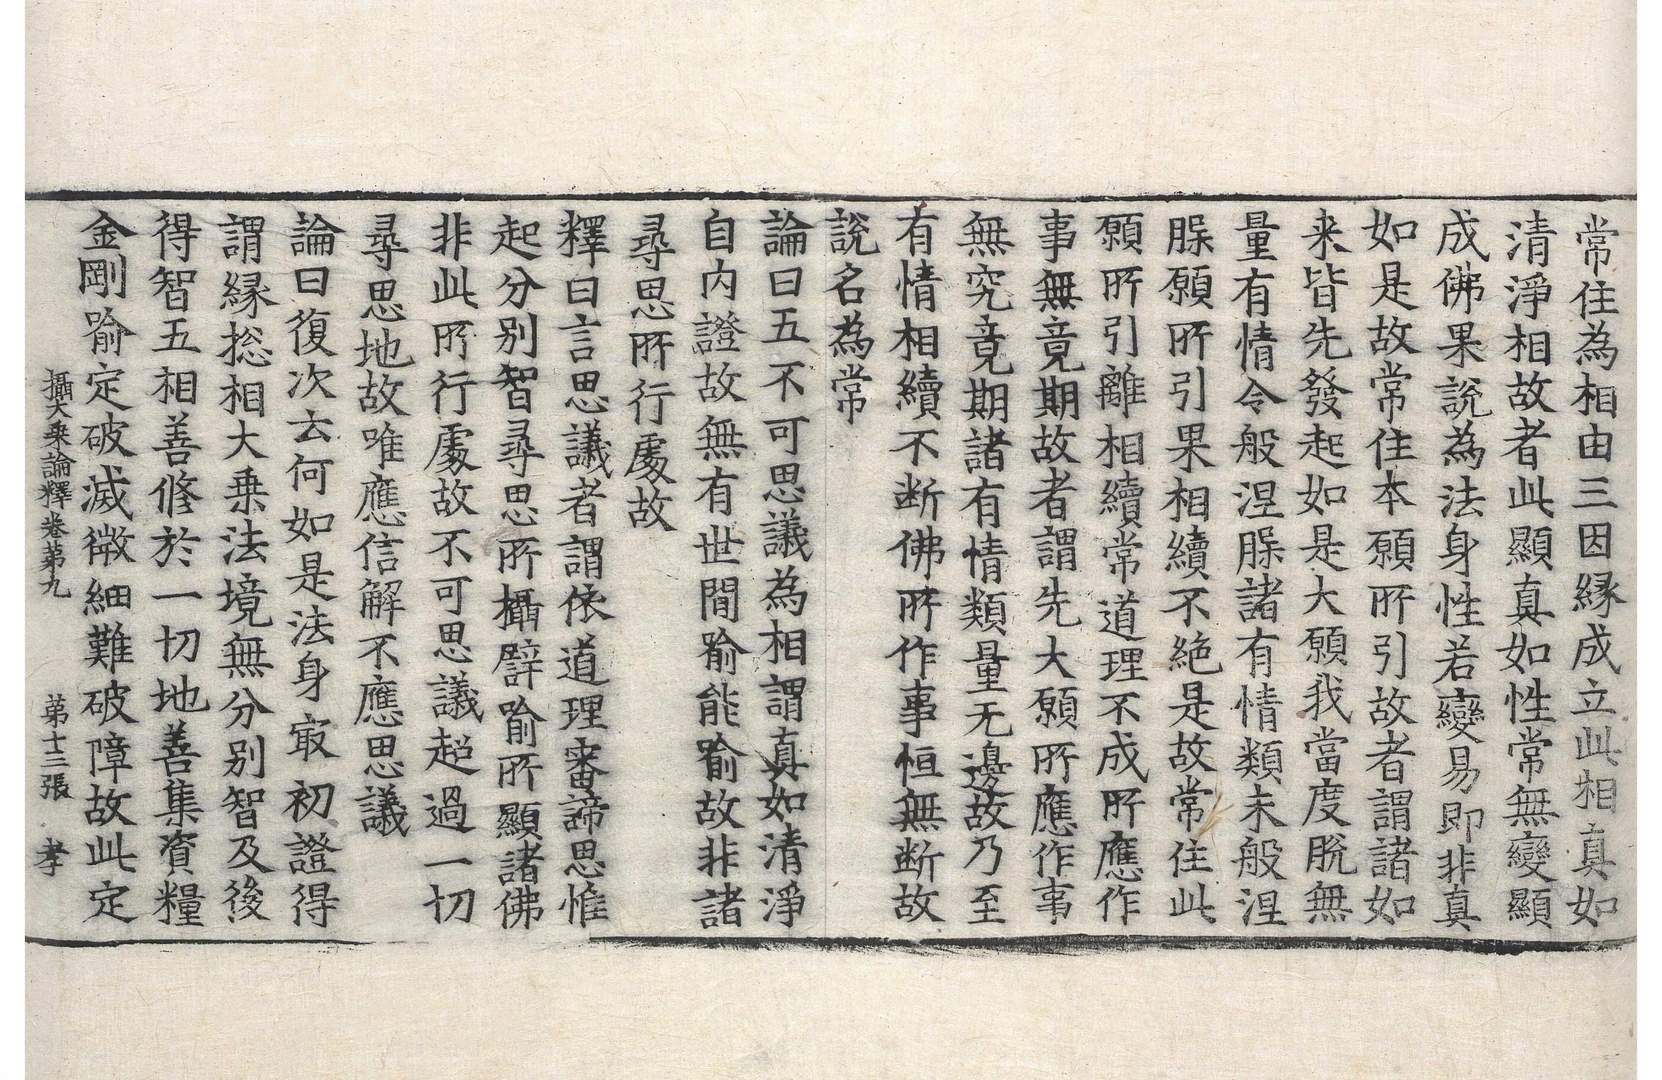 常住為相由三因緣成立此相真如
清淨相故者此顯真如性常無變顯
成佛果說為法身性若變易即非真
如是故常住本願所引故者謂諸如
来皆先發起如是大願我當度脫無
量有情令般涅槃諸有情類未般涅
槃願所引果相續不絶是故常住此
願所引離相續常道理不成所應作
事無竟期故者謂先大願所應作事
無究竟期諸有情類量无邊故乃至
有情相續不断佛所作事恒無断故
說名為常
論曰五不可思議為相謂真如清淨
自内證故無有世間喻能喻故非諸
尋思所行處故
釋曰言思議者謂依道理審諦思惟
起分別智尋思所攝譬喻所顯諸佛
非此所行處故不可思議超過一切
尋思地故唯應信解不應思議
論曰復次云何如是法身㝡初證得
謂緣揔相大乗法境無分別智及後
得智五相善修於一切地善集資糧
金剛喻定破滅微細難破障故此定
攝大乗論釋卷第九 第十三張 孝